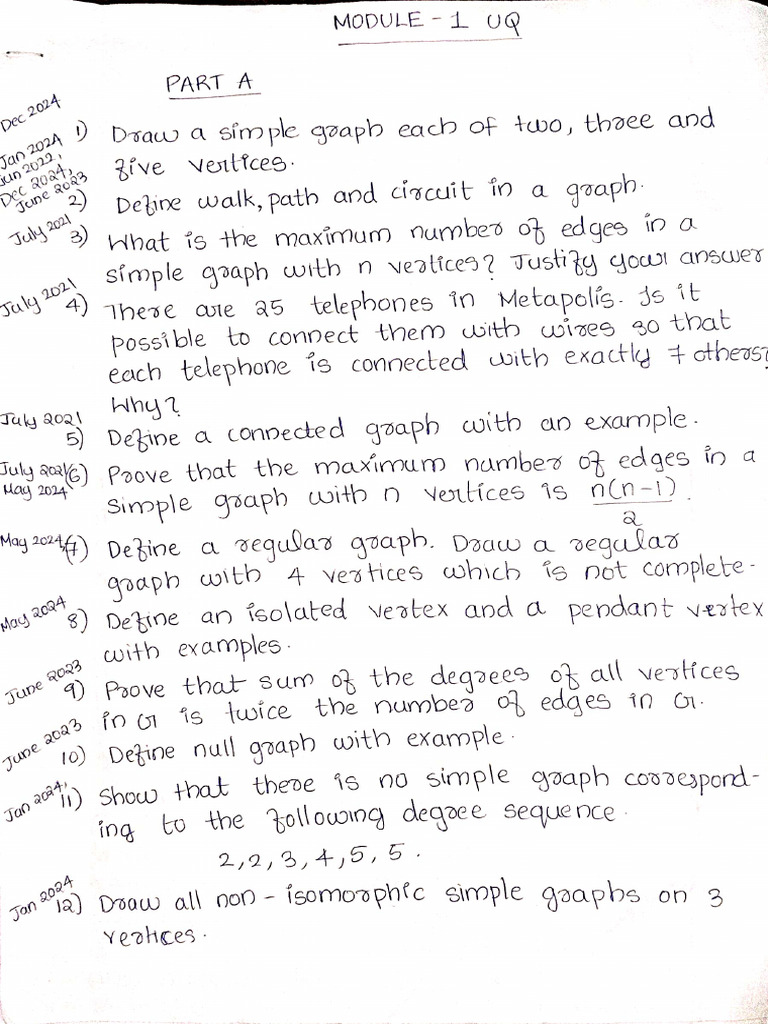 MODULE - 1 UQ
PART A
Dec 2024
1) Draw a simple graph each of two, three and
Jan 2024
Jun 2022,
five vertices.
Dec 2024,
June 2023
2) Define walk, path and circuit in a graph.
July 2021
3) What is the maximum number of edges in a
simple graph with n vertices? Justify your answer
July 2021
4) There are 25 telephones in Metapolis. Is it
possible to connect them with wires so that
each telephone is connected with exactly 7 others?
Why?
July 2021
5) Define a connected graph with an example.
July 2021 6) Prove that the maximum number of edges in a
May 2024
simple graph with n vertices is n(n-1)/2.
May 2024 7) Define a regular graph. Draw a regular
graph with 4 vertices which is not complete.
May 2024
8) Define an isolated vertex and a pendant vertex
with examples.
June 2023
9) Prove that sum of the degrees of all vertices
in G is twice the number of edges in G.
June 2023
10) Define null graph with example.
Jan 2024,
11) Show that there is no simple graph correspond-
ing to the following degree sequence.
2, 2, 3, 4, 5, 5.
Jan 2024
12) Draw all non-isomorphic simple graphs on 3
vertices.